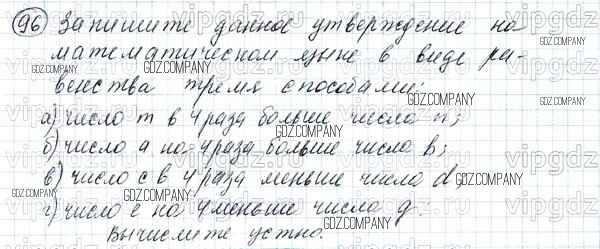 96 Запишите данное утверждение на
математическом языке в виде ра-
венства тремя способами:
а) число m в 4 раза больше числа n;
б) число a на 4 раза больше числа b;
в) число c в 4 раза меньше числа d
г) число e на 4 меньше числа g.
Вычислите устно.
GDZ.COMPANY
GDZ.COMPANY
GDZ.COMPANY
GDZ.COMPANY
GDZ.COMPANY
GDZ.COMPANY
GDZ.COMPANY
GDZ.COMPANY
GDZ.COMPANY